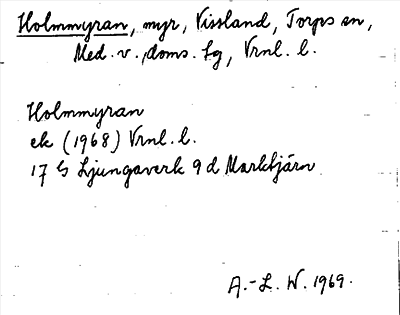 Holmmyran, myr, Vissland, Torps sn,
Med. v., doms. lg, Vrnl. l.
Holmmyran
ek (1968) Vrnl. l.
17 G Ljungaverk 9 d Marktjärn
A.-L. W. 1969.